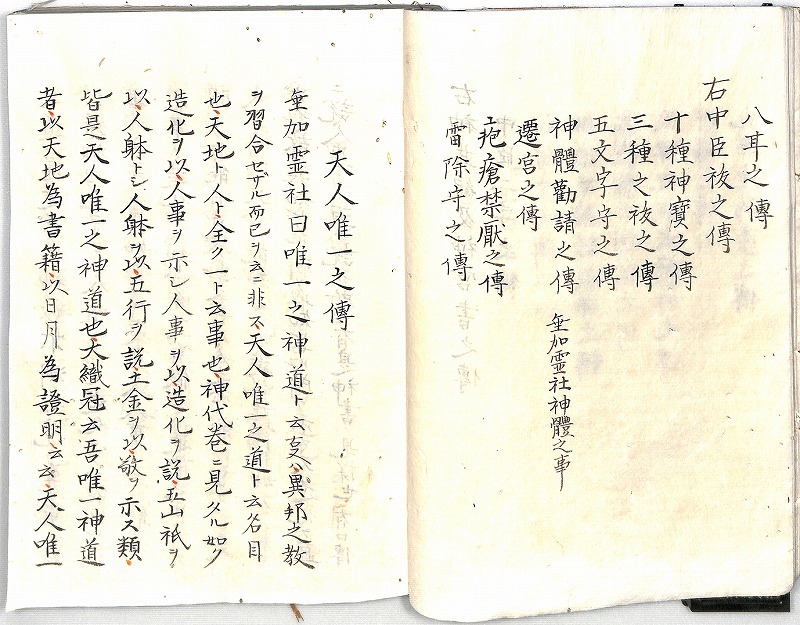 八耳之傳
右中臣祓之傳
十種神寶之傳
三種之祓之傳
五文字守之傳
神體勸請之傳 垂加霊社神體之事
遷宮之傳
疱瘡禁厭之傳
雷除守之傳
天人唯一之傳
垂加霊社曰唯一之神道ト云事ハ異邦之教
ヲ習合セザル而已ヲ云ニ非ス天人唯一之道ト云名目
也天地ト人ト全ク一ト云事也神代巻ニ見タル如ク
造化ヲ以人事ヲ示シ人事ヲ以造化ヲ説五山祇ヲ
以人躰トシ人躰ヲ以五行ヲ説土金ヲ以敬ヲ示ス類
皆是天人唯一之神道也大織冠云吾唯一神道
者以天地為書籍以日月為證明云云天人唯一